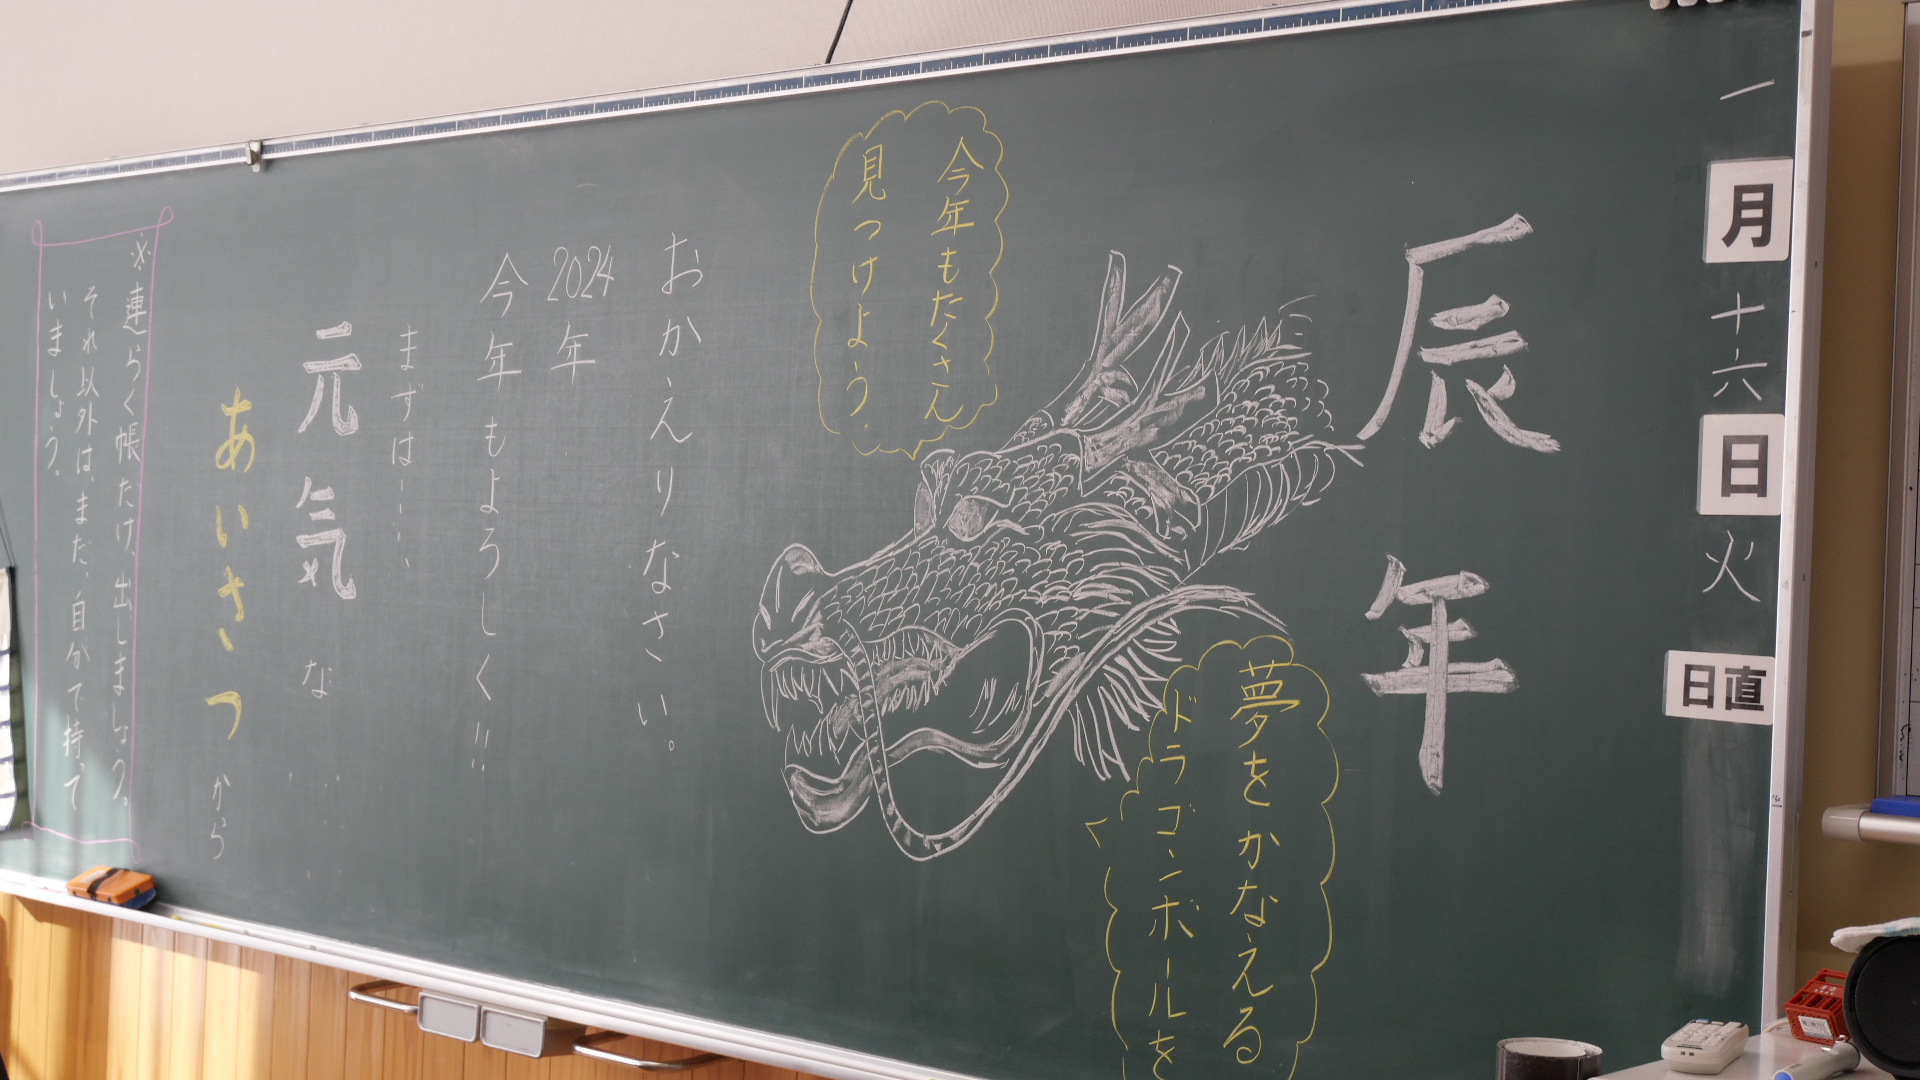 一月十六日火
日直
辰年
夢をかなえる
ドラゴンボールを
今年もたくさん
見つけよう。
おかえりなさい。
2024年
今年もよろしく!!
まずは……、
元気な
あいさつから
※連らく帳だけ、出しましょう。
それ以外は、まだ、自分で持って
いましょう。